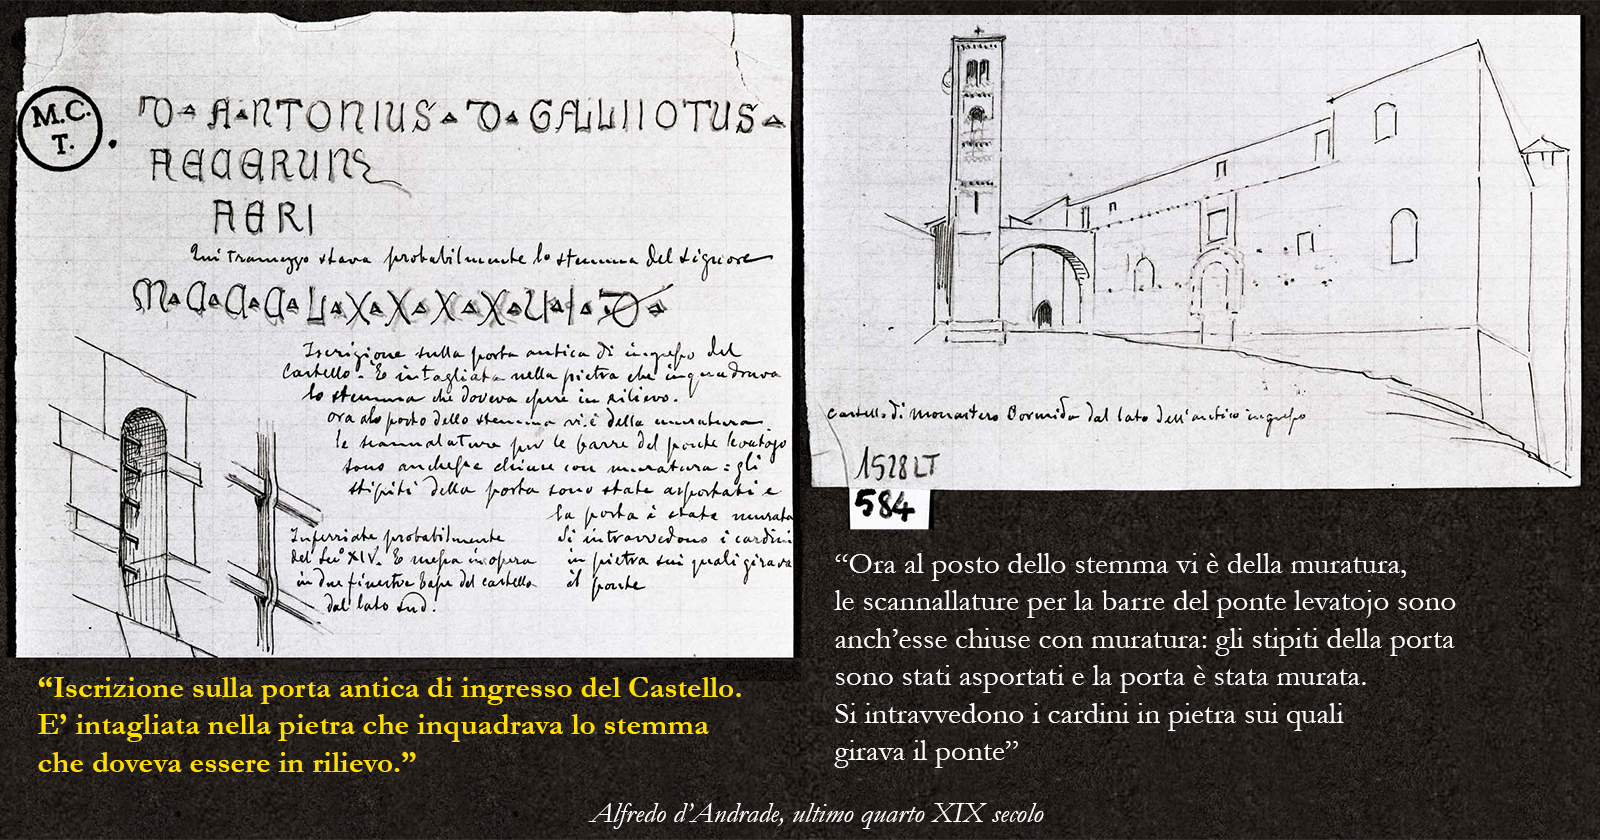 M.C.
T.
D▵A▵NTONIUS▵D▵GALLIIOTUS▵
AECERUNT
AERI
Qui tramezzo stava probabilmente lo stemma del signore
M▵C▵C▵C▵L▵X▵X▵X▵X▵U▵I▵D▵
Iscrizione sulla porta antica di ingresso del
Castello - È intagliata nella pietra che inquadrava
lo stemma che doveva essere in rilievo.
ora al posto dello stemma vi è della muratura
le scannalature per le barre del ponte levatojo
sono anchesse chiuse con muratura = gli
stipiti della porta sono state asportati e
la porta è stata murata
Si intravvedono i cardini
in pietra sui quali girava
il ponte
Inferriate probabilmente
del Sec° XIV. È messa in opera
in due finestre basse del castello
dal lato Sud.
castello di monastero Bormida dal lato dell'antico ingresso
1528 LT
584
“Iscrizione sulla porta antica di ingresso del Castello.
E’ intagliata nella pietra che inquadrava lo stemma
che doveva essere in rilievo.”
“Ora al posto dello stemma vi è della muratura,
le scannallature per la barre del ponte levatojo sono
anch’esse chiuse con muratura: gli stipiti della porta
sono stati asportati e la porta è stata murata.
Si intravvedono i cardini in pietra sui quali
girava il ponte”
Alfredo d’Andrade, ultimo quarto XIX secolo